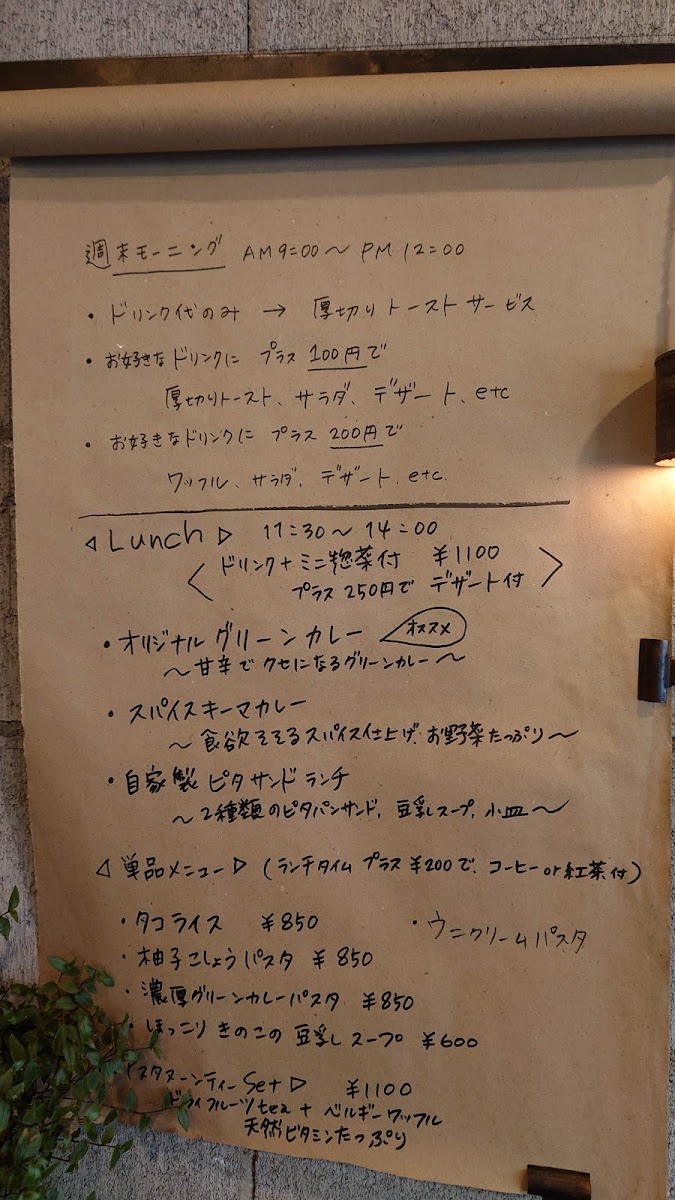 週末モーニング AM9:00〜PM12:00
・ドリンク代のみ → 厚切りトーストサービス
・お好きなドリンクに プラス100円で
厚切りトースト、サラダ、デザート、etc
・お好きなドリンクに プラス200円で
ワッフル、サラダ、デザート、etc.
◁Lunch▷ 11:30〜14:00
〈ドリンク+ミニ惣菜付 ¥1100
プラス250円で デザート付〉
・オリジナルグリーンカレー オススメ
〜甘辛でクセになるグリーンカレー〜
・スパイスキーマカレー
〜食欲そそるスパイス仕上げ、お野菜たっぷり〜
・自家製ピタサンドランチ
〜2種類のピタパンサンド、豆乳スープ、小皿〜
◁単品メニュー▷(ランチタイムプラス¥200で、コーヒーor紅茶付)
・タコライス ¥850
・ウニクリームパスタ
・柚子こしょうパスタ ¥850
・濃厚グリーンカレーパスタ ¥850
・ほっこりきのこの豆乳スープ ¥600
タヌーンティーSet▷ ¥1100
ドライフルーツtea+ベルギーワッフル
天然ビタミンたっぷり